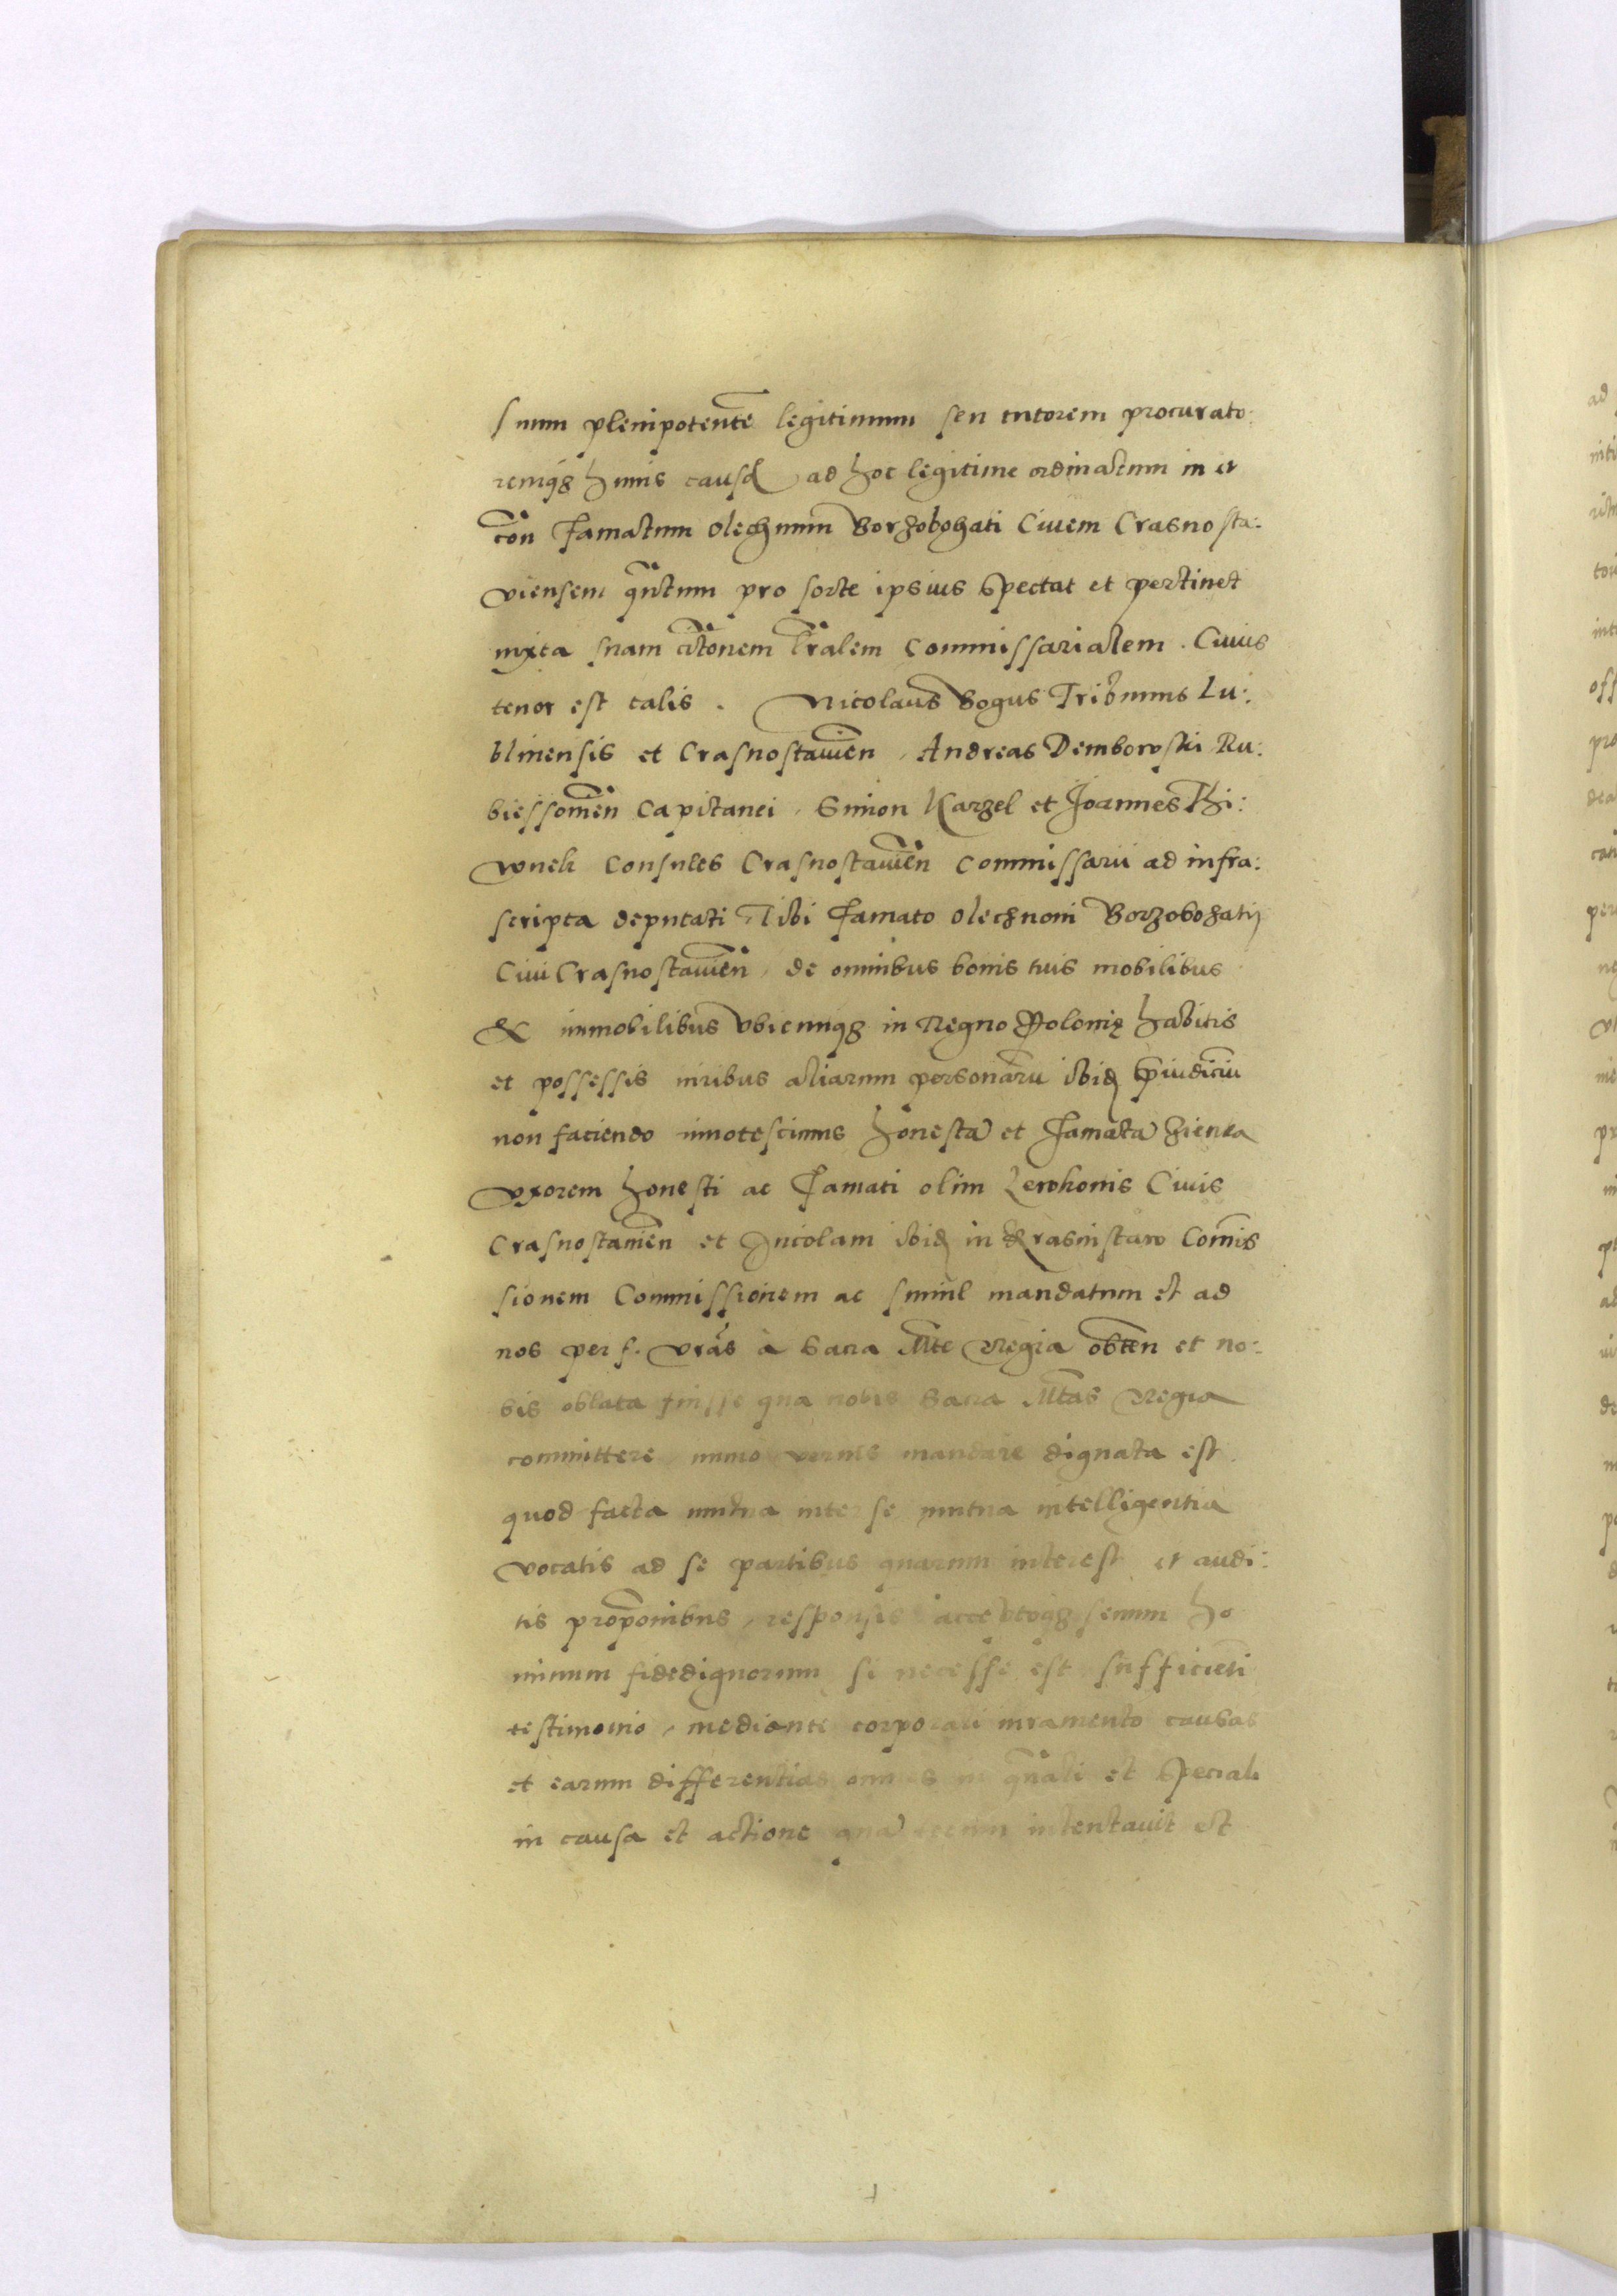 suum plenipotentē legitimum seu tutorem procurato:
remqȝ huius causę ad hoc legitime ordinatum in et
con Famatum Olechnum Borzobohati Ciuem Crasnosta:
viensem qntum pro sorte ipsius spectat et pertinet
iuxta suam citonem lralem Commissarialem. Cuius
tenor est talis. Nicolaus Bogus Tribunus Lu:
blinensis et Crasnostavien, Andreas Demborosky Ru:
biessouien Capitanei, Simon Karzel et Joannes Thi:
wneli Consules Crasnostavien Commissarii ad infra:
scripta deputati Tibi Famato Olechnoni Borzobohatij
Ciui Crasnostavien, de omnibus bonis tuis mobilibus
& immobilibus vbicunqȝ in Regno Polonię habitis
et possessis iuribus aliarum personaru ibid priudiciu
non faciendo innotescimus honesta et Famata Hienra
vxorem honesti ac Famati olim Lewkonis Ciuis
Crasnostavien et Incolam ibid in Krasnistaw Comis
sionem Commissionem ac simul mandatum et ad
nos per s. vras a Sacra Mte Regia obten et no:
bis oblata fuisse qua nobis Sacra Mtas Regia
committere immo verius mandare dignata est
quod facta mutua inter se mutua intelligentia
vocatis ad se partibus quarum interest et audi:
tis proponibus, responsis acceptoqȝ senum ho
minum fidedignorum si necesse est sufficieti
testimonio, mediante corporali iuramento causas
et earum differentias omnes in gnali et speciali
in causa et actione qua tecum intentauit et